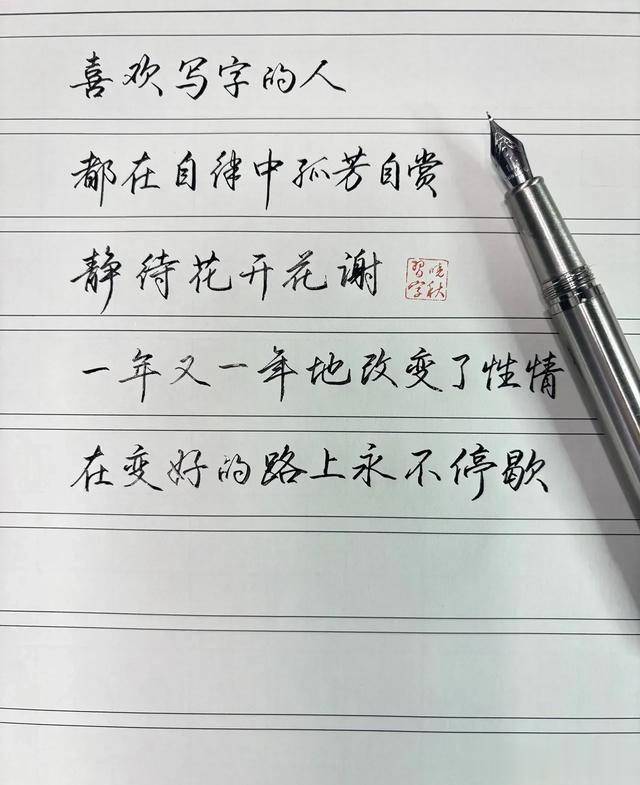 喜欢写字的人
都在自律中孤芳自赏
静待花开花谢
晓秋习字
一年又一年地改变了性情
在变好的路上永不停歇